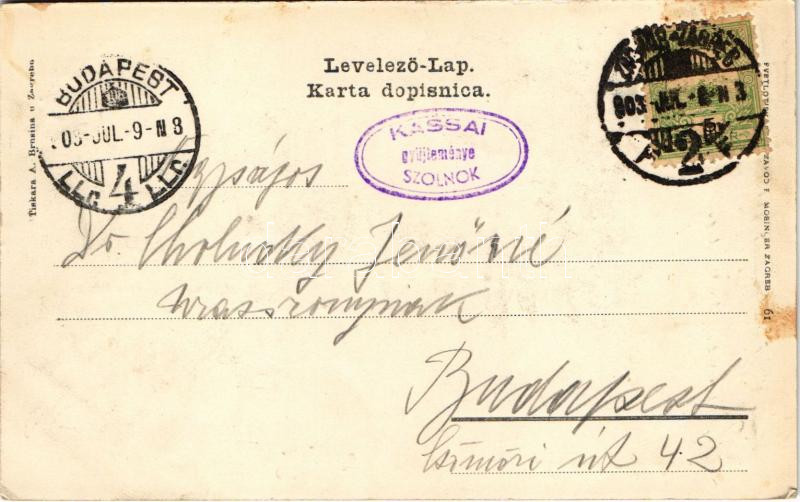 Levelező-Lap.
Karta dopisnica.
BUDAPEST
903-JUL.-9-N 8
4
KASSAI
gyüjteménye
SZOLNOK
903-JUL.-8-N 3
2
Tiskara A. Brusina u Zagrebu
MOSINGER ZAGREB 61
Nagyságos
Dr. Cholnoky Jenőné
urasszonynak
Budapest
út 42